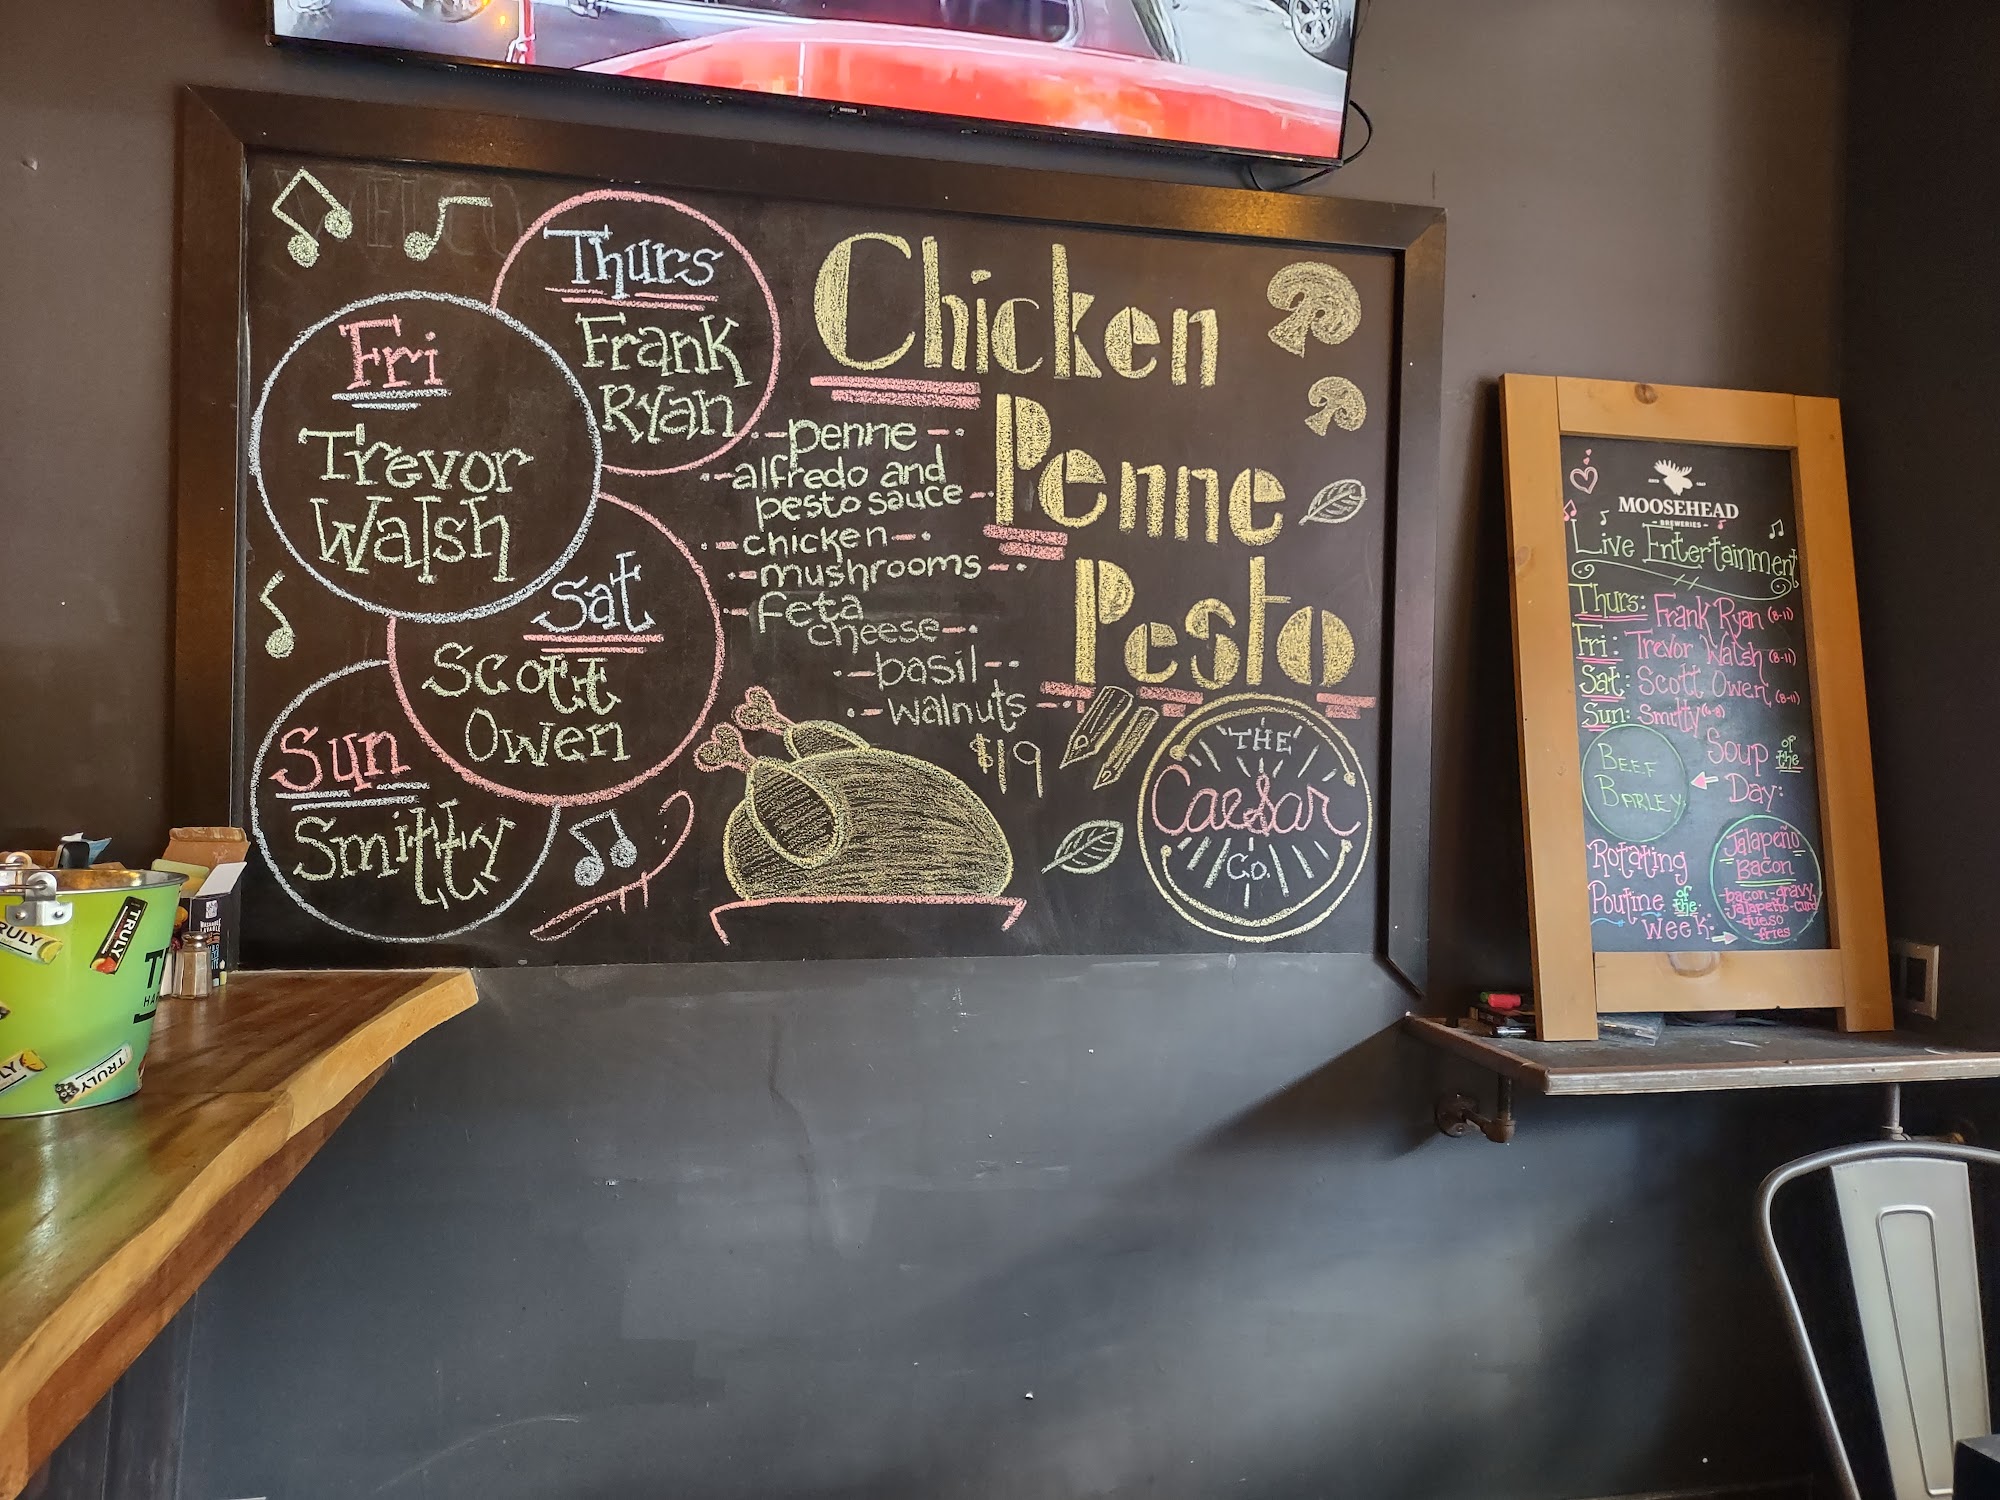 Thurs
Frank
Ryan
Fri
Trevor
Walsh
Sat
Scott
Owen
Sun
Smitty
Chicken
Penne
Pesto
- penne -
- alfredo and
pesto sauce -
- chicken -
- mushrooms -
- feta
cheese -
- basil -
- walnuts -
$19
THE
Caesar
Co.
MOOSEHEAD
- BREWERIES -
Live Entertainment
Thurs: Frank Ryan (8-11)
Fri: Trevor Walsh (8-11)
Sat: Scott Owen (8-11)
Sun: Smitty
Soup of the
Day:
BEEF
BARLEY
Rotating
Poutine of the
Week:
Jalapeño
Bacon
- bacon - gravy
jalapeño - curd
- queso
- fries
TRULY
TRULY
TRULY
SAMSUNG